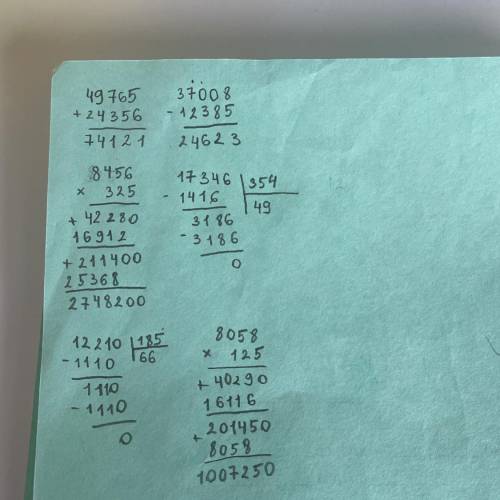 49765
+24356
74121
37008
-12385
24623
8456
× 325
+ 42280
16912
+211400
25368
2748200
17346 354
- 1416 49
3186
- 3186
0
12210 185
-1110 66
1110
- 1110
0
8058
× 125
+ 40290
16116
+ 201450
8058
1007250